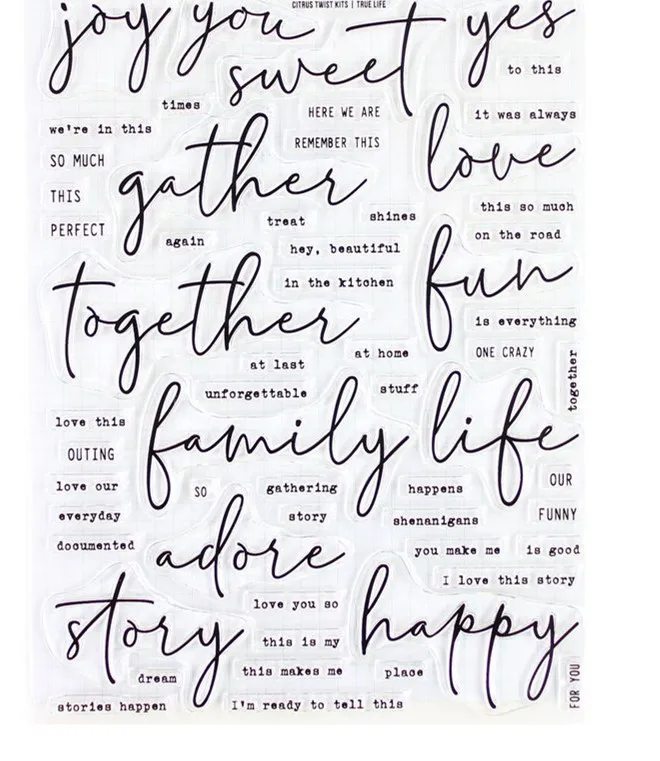 CITRUS TWIST KITS | TRUE LIFE
joy you sweet yes
to this
times
HERE WE ARE
it was always
we're in this
REMEMBER THIS
love
SO MUCH
gather
THIS
this so much
treat
shines
PERFECT
on the road
again
hey, beautiful
fun
in the kitchen
together
is everything
at last
at home
ONE CRAZY
together
unforgettable
stuff
love this
family
life
OUTING
OUR
love our
SO
gathering
happens
everyday
story
shenanigans
FUNNY
documented
adore
you make me
is good
I love this story
love you so
story
happy
this is my
dream
this makes me
place
FOR YOU
stories happen
I'm ready to tell this